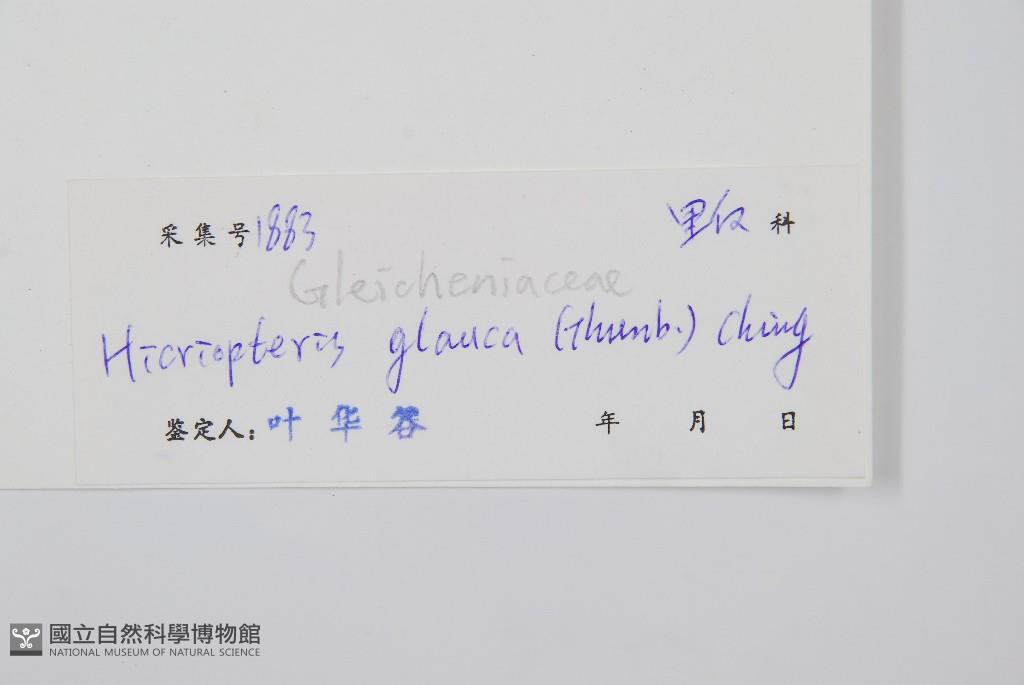 采集号 1883 里白 科
Gleicheniaceae
Hicriopteris glauca (Thunb.) Ching
鉴定人: 叶 华 谷
年 月 日
國立自然科學博物館
NATIONAL MUSEUM OF NATURAL SCIENCE